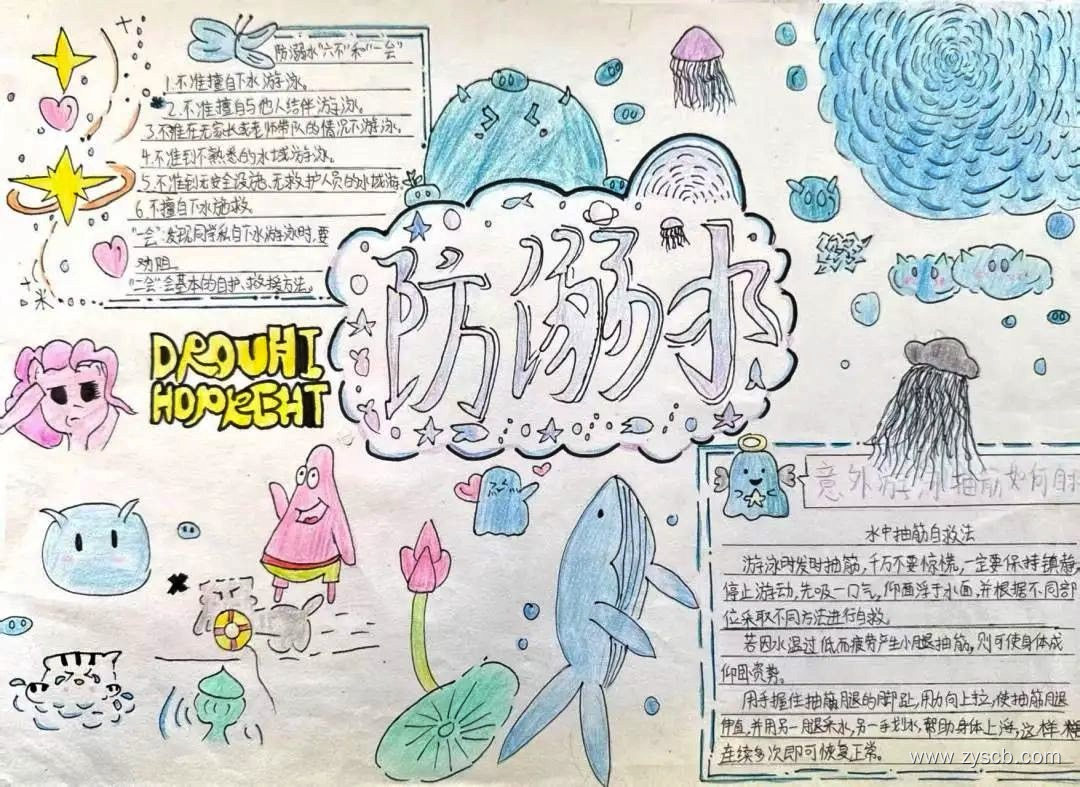 防溺水"六不"和"一会"
1.不准擅自下水游泳。
2.不准擅自与他人结伴游泳。
3.不准在无家长或老师带队的情况下游泳。
4.不准到不熟悉的水域游泳。
5.不准到无安全设施、无救护人员的水域游
6.不擅自下水施救。
"一会":发现同学私自下水游泳时,要
劝阻。
"二会"会基本的自护、救援方法。
防溺水
DROUHI
HOPRCHT
意外游泳抽筋如何自
水中抽筋自救法
游泳时发时抽筋,千万不要惊慌,一定要保持镇静,
停止游动,先吸一口气,仰面浮于水面,并根据不同部
位采取不同方法进行自救。
若因水温过低而疲劳产生小腿抽筋,则可使身体成
仰卧姿势。
用手握住抽筋腿的脚趾,用力向上拉,使抽筋腿
伸直,并用另一腿采水,另一手划水,帮助身体上海,这样
连续多次即可恢复正常。
www.zyscb.com